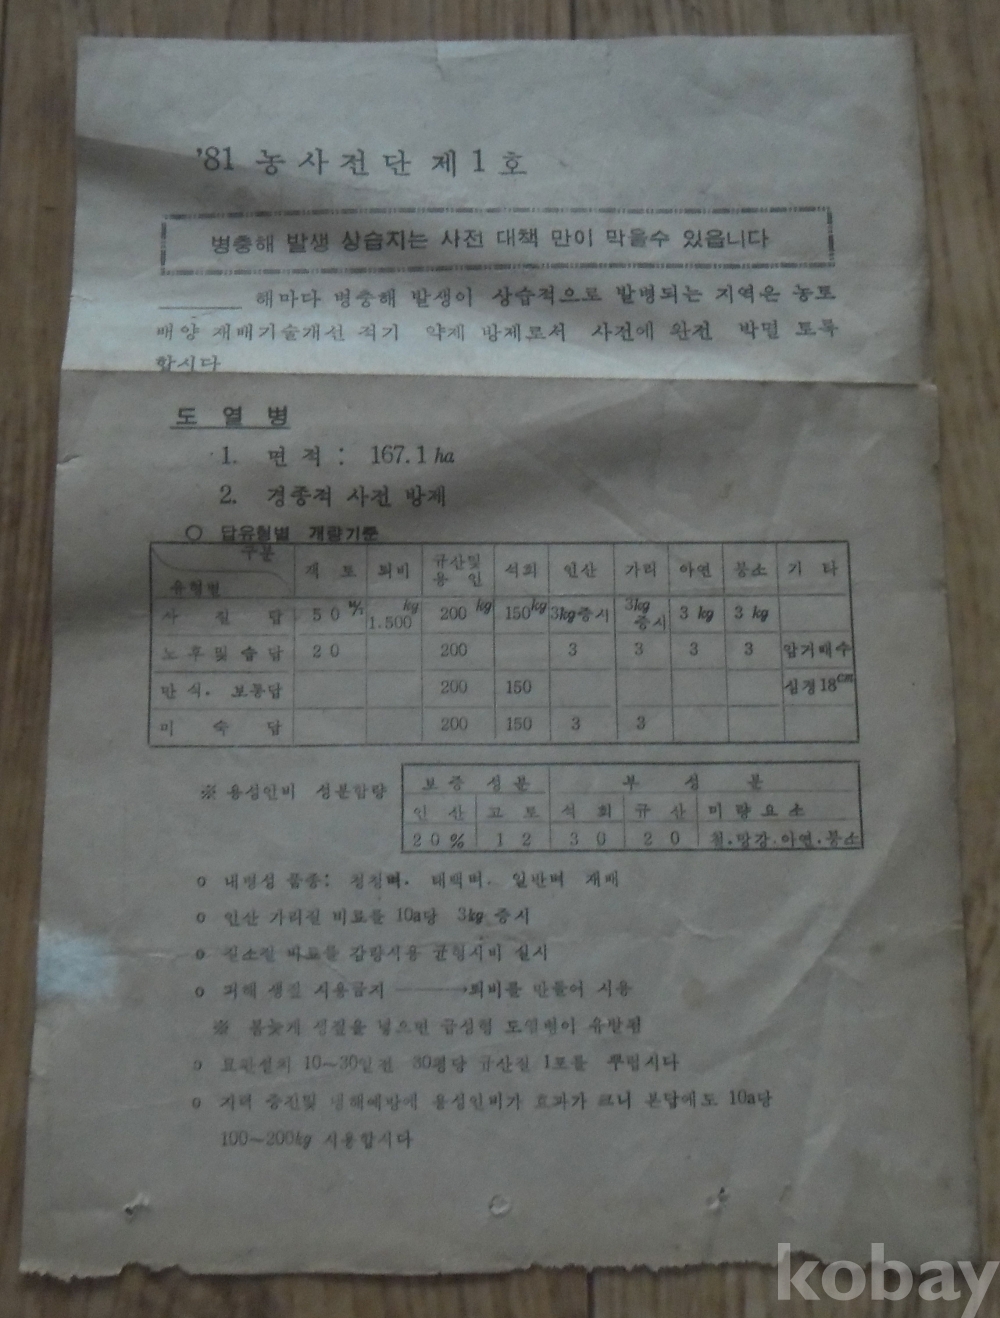 '81 농사전단 제1호
병충해 발생 상습지는 사전 대책 만이 막을수 있읍니다
해마다 병충해 발생이 상습적으로 발병되는 지역은 농토
배양 재배기술개선 적기 약제 방제로서 사전에 완전 박멸 토록
합시다
도열병
1. 면적 : 167.1 ha
2. 경종적 사전 방제
○ 답유형별 개량기준
구분 유형별 객토 퇴비 규산및 용인 석회 인산 가리 아연 붕소 기타
사질답 50 1.500kg 200kg 150kg 3kg증시 3kg증시 3kg 3kg
노후및습답 20 200 3 3 3 3 암거배수
만식. 보통답 200 150 심경18cm
미숙답 200 150 3 3
※ 용성인비 성분함량
보증성분 부성분
인산 고토 석회 규산 미량요소
20% 12 30 20 철.망강.아연.붕소
o 내병성 품종: 청청벼. 태백벼. 일반벼 재배
o 인산 가리질 비료를 10a당 3kg 증시
o 질소질 비료를 감량시용 균형시비 실시
o 생짚 시용금지 ———→퇴비를 만들어 시용
※ 봄늦게 생짚을 넣으면 급성형 도열병이 유발됨
o 10~30일전 30평당 규산질 1포를 뿌립시다
o 지력 증진및 냉해예방에 용성인비가 효과가 크니 본답에도 10a당
100~200kg 시용합시다
kobay